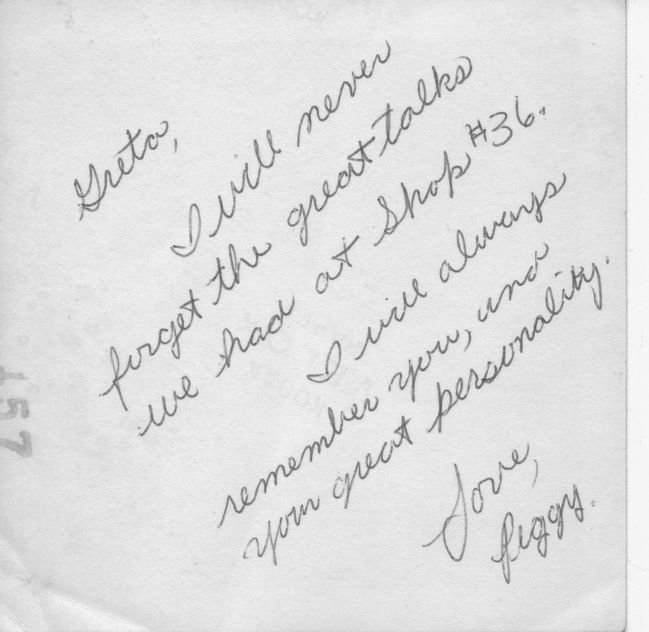 Greta,
I will never
forget the great talks
we had at Shop #36.
I will always
remember you, and
your great personality.
Love,
Peggy.
157